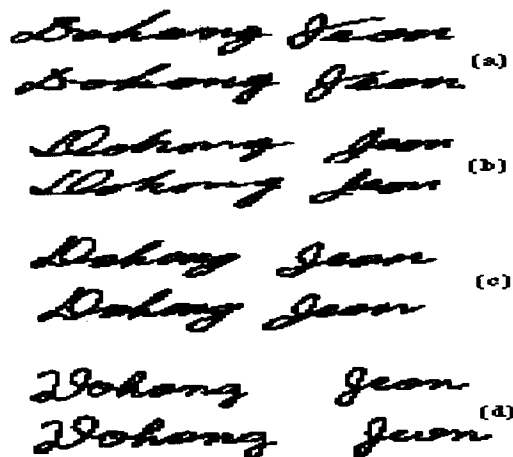 Dohong Jeon
Dohong Jeon
(a)
Dohong Jeon
Dohong Jeon
(b)
Dohong Jeon
Dohong Jeon
(c)
Dohong Jeon
Dohong Jeon
(d)